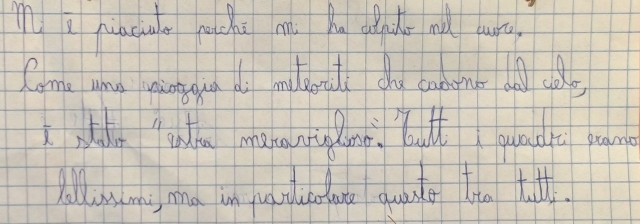 Mi è piaciuto perchè mi ha colpito nel cuore.
Come una pioggia di meteoriti che cadono dal cielo,
è stato "astra meraviglioso". Tutti i quadri erano
bellissimi, ma in particolare questo tra tutti.